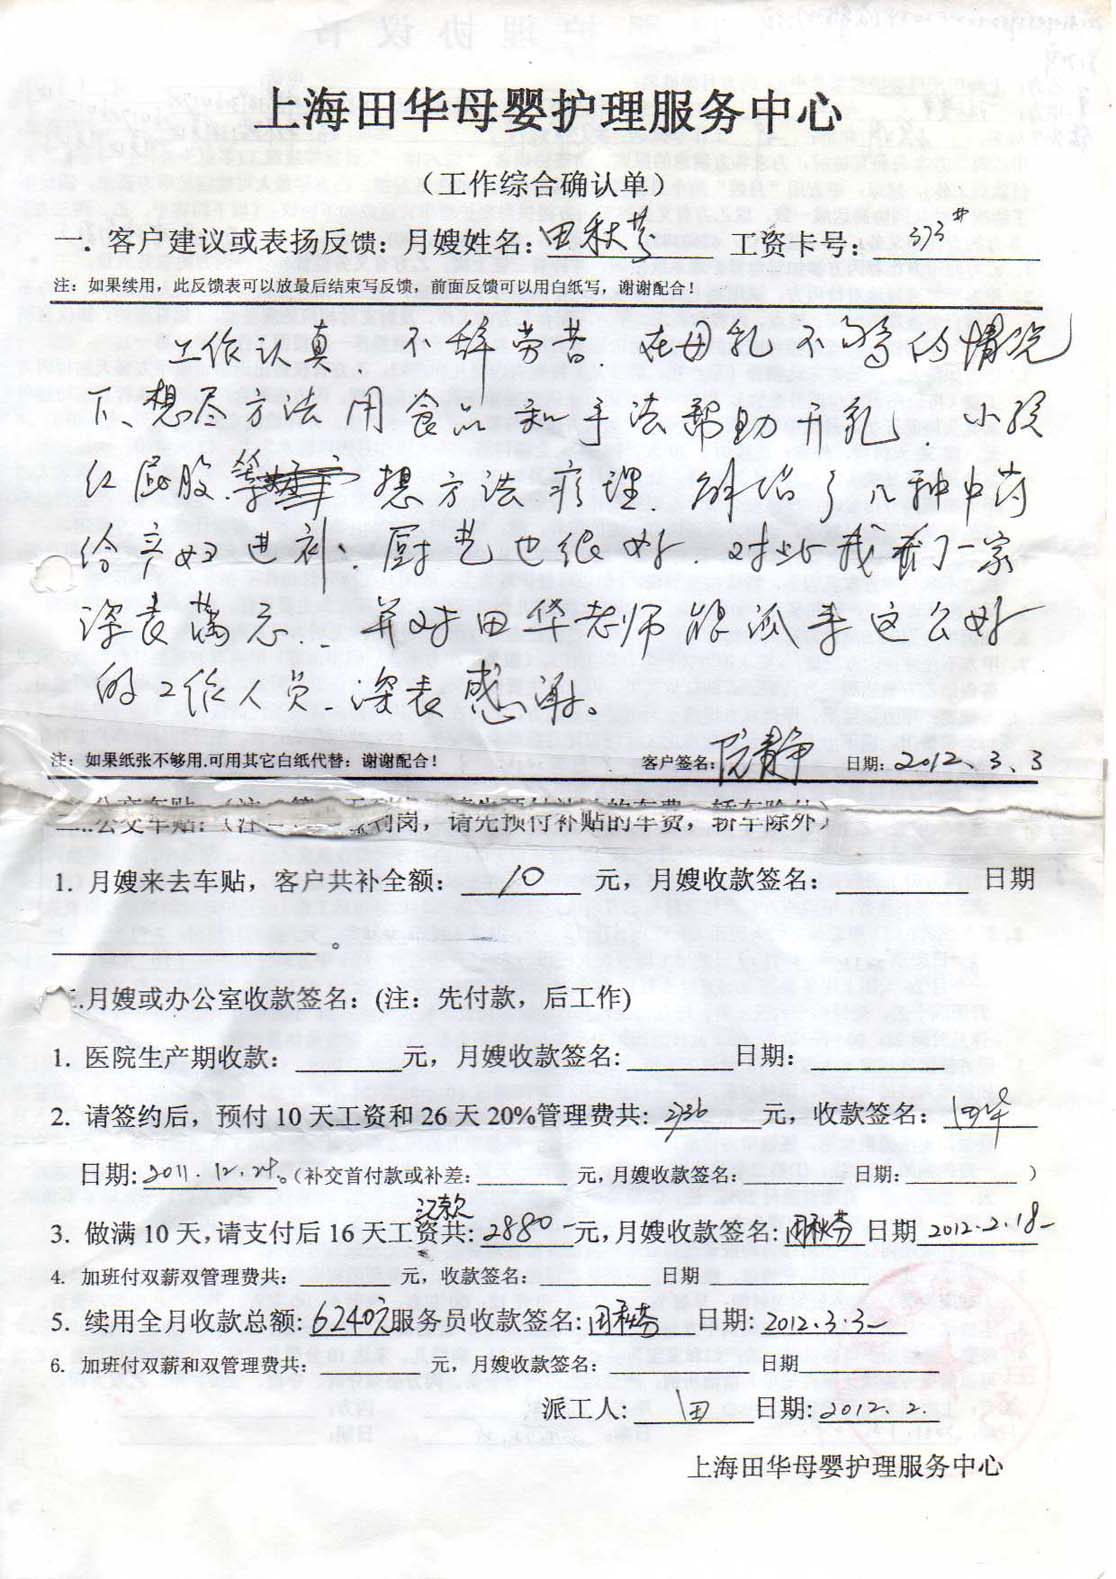 上海田华母婴护理服务中心
（工作综合确认单）
一．客户建议或表扬反馈：月嫂姓名：田秋芬 工资卡号：373#
注：如果续用，此反馈表可以放最后结束写反馈，前面反馈可以用白纸写，谢谢配合！
工作认真．不辞劳苦．在母乳不够的情况
下、想尽方法用食品和手法帮助开乳．小孩
红屁股．等 想方法疗理．介绍了几种中药
给产妇进补．厨艺也很好．对此我们一家
深表满意．并对田华老师能派来这么好
的工作人员．深表感谢。
注：如果纸张不够用.可用其它白纸代替：谢谢配合！ 客户签名：阮静 日期：2012.3.3
二.公交车贴：（注 到岗，请先预付补贴的车费，轿车除外）
1. 月嫂来去车贴，客户共补全额：10 元，月嫂收款签名： 日期
。
三.月嫂或办公室收款签名：(注：先付款，后工作)
1. 医院生产期收款： 元，月嫂收款签名: 日期：
2. 请签约后，预付 10 天工资和 26 天 20%管理费共: 2736 元，收款签名：田华
日期: 2011.12.24。（补交首付款或补差： 元,月嫂收款签名： 日期： ）
3. 做满 10 天,请支付后 16 天工资共: 2880 元,月嫂收款签名: 田秋芬 日期 2012.2.18
4. 加班付双薪双管理费共： 元，收款签名： 日期
5. 续用全月收款总额: 6240元 服务员收款签名: 田秋芬 日期: 2012.3.3
6. 加班付双薪和双管理费共： 元，月嫂收款签名： 日期
派工人: 田 日期: 2012.2.
上海田华母婴护理服务中心